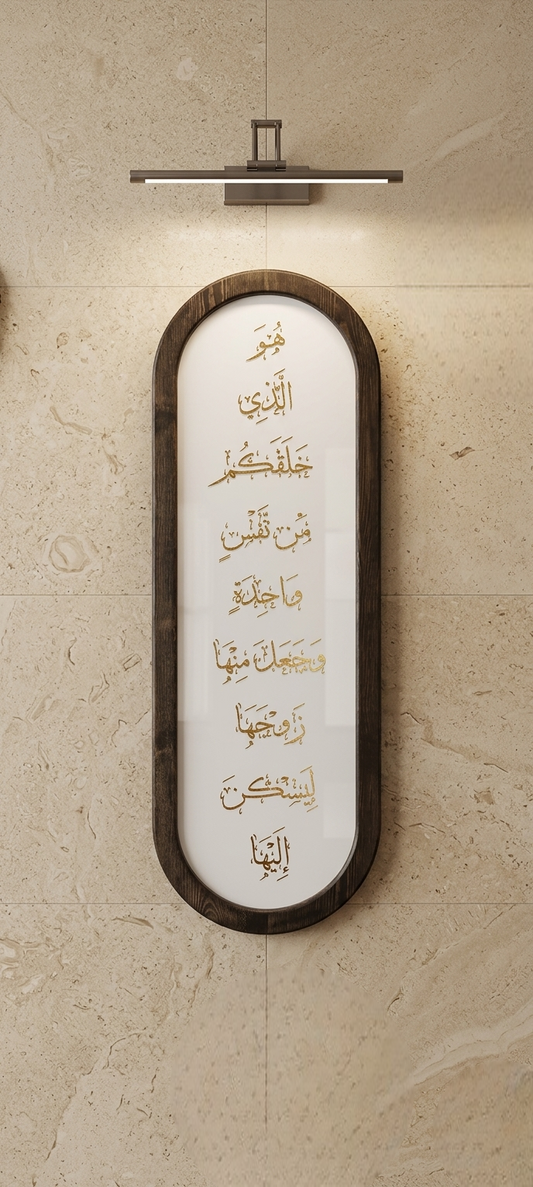 هُوَ
الَّذِي
خَلَقَكُم
مِّن نَّفْسٍ
وَاحِدَةٍ
وَجَعَلَ مِنْهَا
زَوْجَهَا
لِيَسْكُنَ
إِلَيْهَا